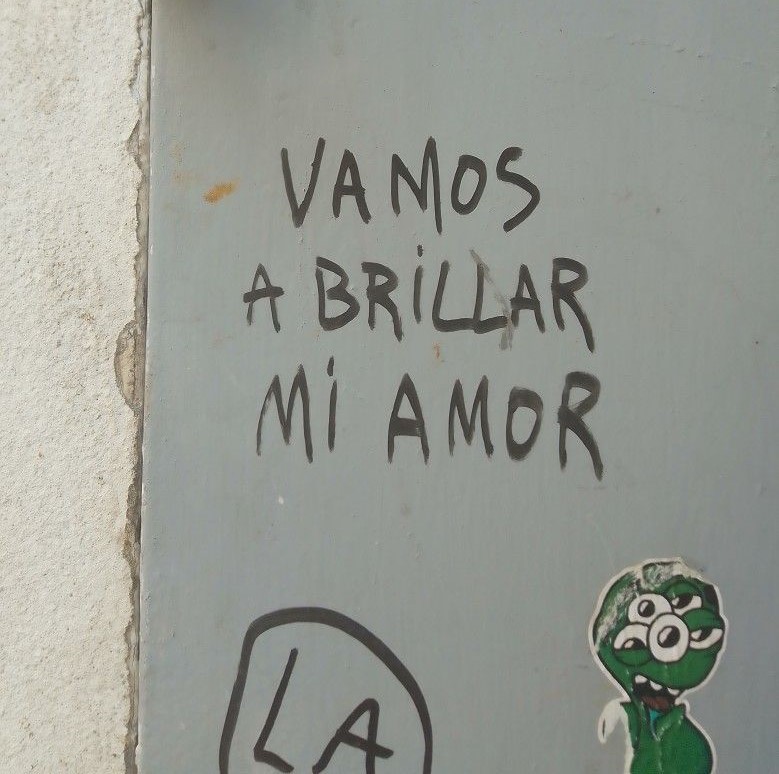 VAMOS
A BRiLLAR
Mi AMOR
LA